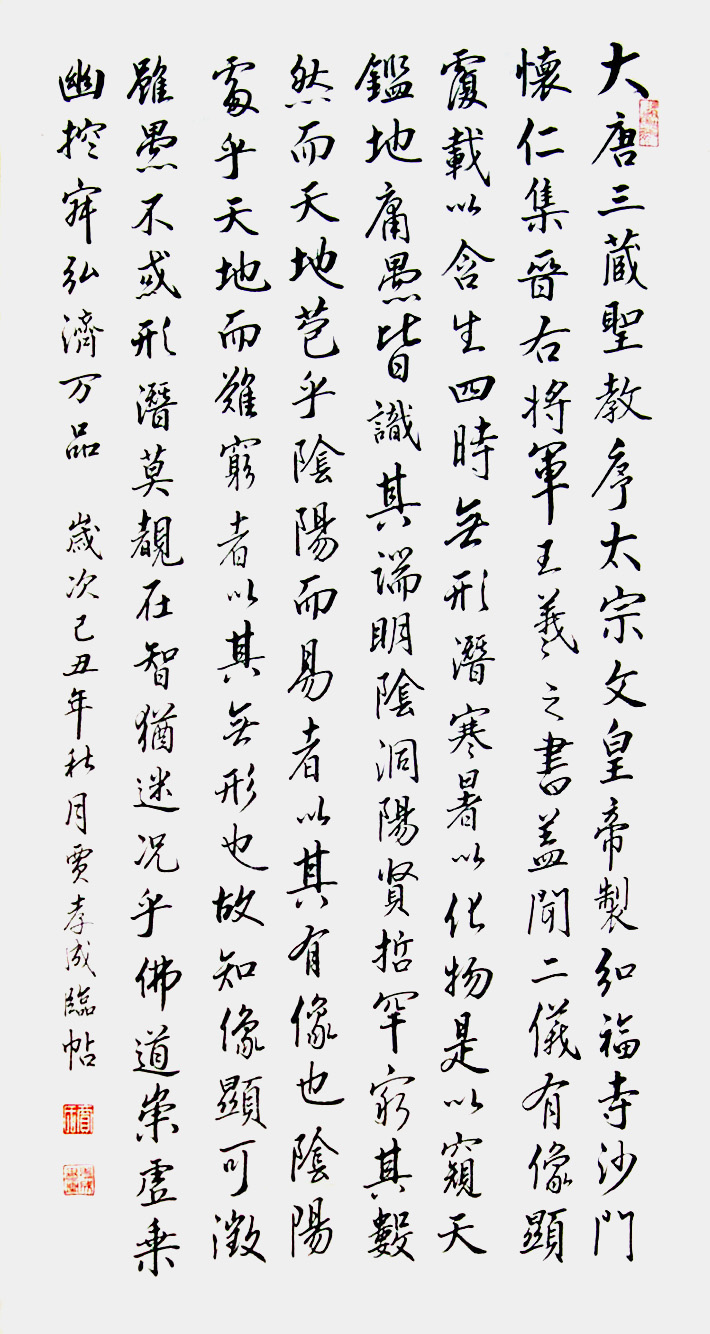 大唐三蔵聖教序太宗文皇帝製弘福寺沙門
懷仁集晉右將軍王羲之書蓋聞二儀有像顯
覆載以含生四時無形潛寒暑以化物是以窺天
鑑地庸愚皆識其端明陰洞陽賢哲罕窮其數
然而天地苞乎陰陽而易者以其有像也陰陽
處乎天地而難窮者以其無形也故知像顯可徵
雖愚不惑形潛莫覩在智猶迷况乎佛道崇虛乘
幽控寂弘濟万品 歲次己丑年秋月賈孝成臨帖